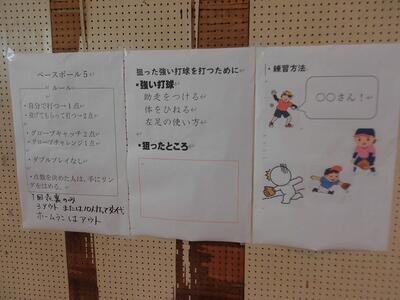 ベースボール5
ルール
・自分で打つ→1点
・投げてもらって打つ→2点
・グローブキャッチ2点
・グローブチャレンジ1点
・ダブルプレイなし
・点数を決めた人は、手にリン
グをはめる。
1回表裏のみ
3アウト または10人打って交代
ホームランはアウト
狙った強い打球を打つために
・強い打球
助走をつける
体をひねる
左足の使い方
・狙ったところ
・練習方法
〇〇さん！